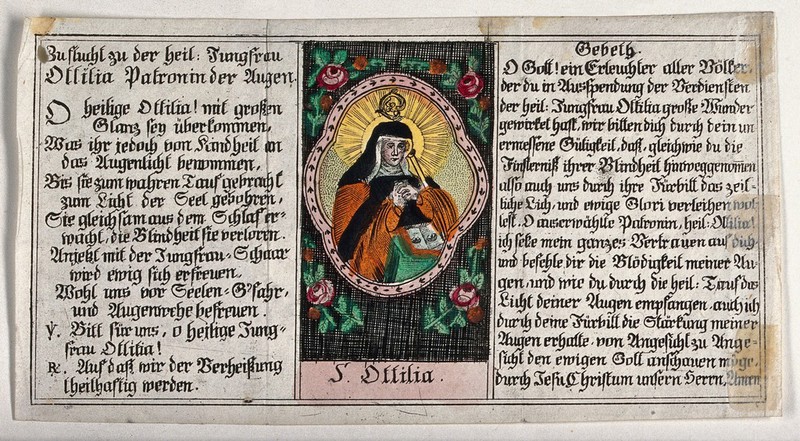 Zuflucht zu der heil: Jungfrau
Ottilia Patronin der Augen.
O heilige Ottilia! mit großen
Glanz sey überkommen,
Was ihr jedoch von Kindheit an
das Augenlicht benommen,
Bis sie zum wahren Tauf gebracht
zum Licht der Seel gebohren,
Sie gleichsam aus dem Schlaf er-
wacht, die Blindheit sie verloren.
Anjetzt mit der Jungfrau-Schaar
wird ewig sich erfreuen.
Wohl uns vor Seelen-G'fahr,
und Augenwehe befreuen.
V. Bitt für uns, o heilige Jung-
frau Ottilia!
R. Auf daß wir der Verheißung
theilhaftig werden.
S. Ottilia.
Gebeth.
O Gott! ein Erleuchter aller Völker,
der du in Ausspendung der Verdiensten
der heil: Jungfrau Ottilia große Wunder
gewirket hast, wir bitten dich durch dein un
ermessene Gütigkeit, daß, gleichwie du die
Finsterniß ihrer Blindheit hinweggenommen
also auch uns durch ihre Fürbitt das zeit-
liche Lich, und ewige Glori verleihen wol
lest. O auserwählte Patronin, heil: Ottilia!
ich setze mein ganzes Vertrauen auf dich
und befehle dir die Blödigkeit meiner Au-
gen, und wie du durch die heil: Tauf das
Licht deiner Augen empfangen, auch ich
durch deine Fürbitt die Stärkung meiner
Augen erhalte, von Angesicht zu Ange-
sicht den ewigen Gott anschauen möge,
durch Jesu Christum unsern Herrn, Amen